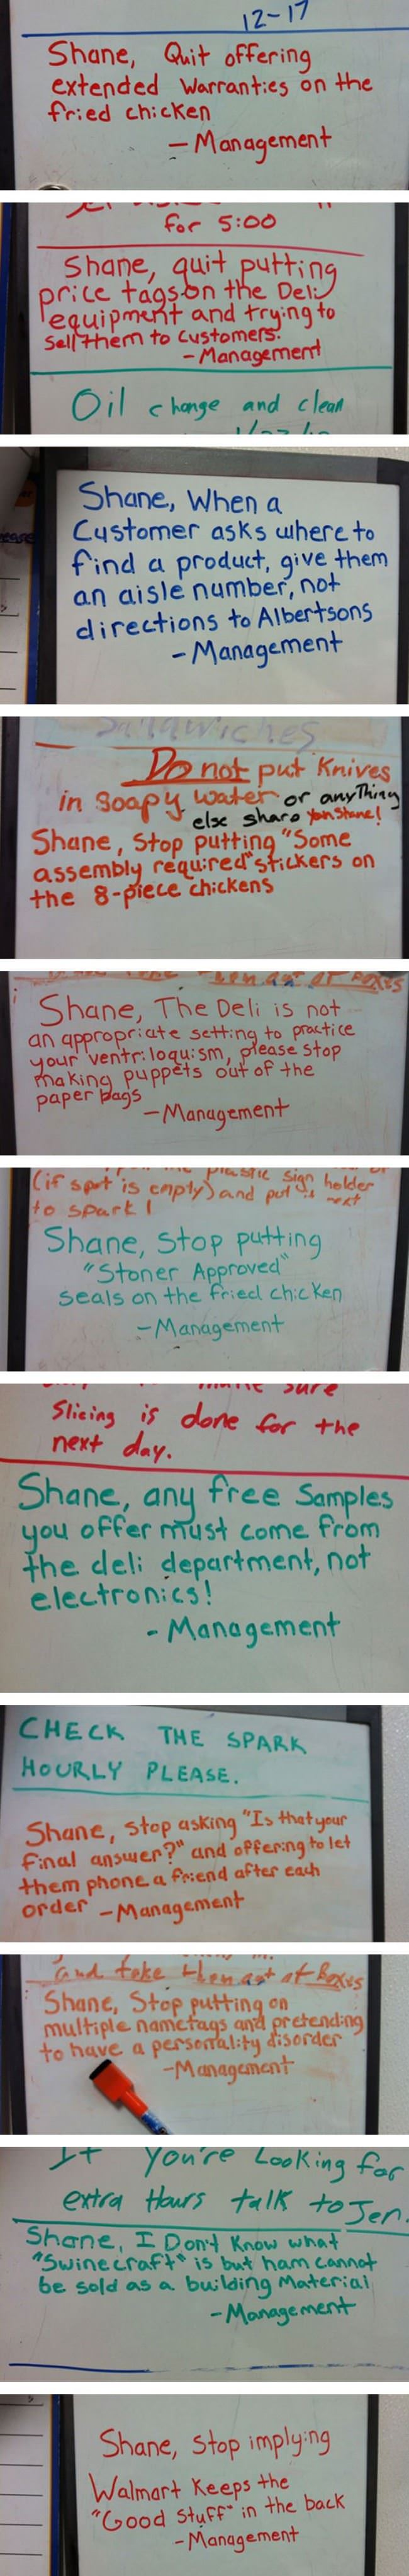 12-17
Shane, Quit offering
extended Warranties on the
fried chicken
- Management
for 5:00
Shane, quit putting
price tags on the Deli
equipment and trying to
sell them to customers.
- Management
Oil change and clean
Shane, When a
Customer asks where to
find a product, give them
an aisle number, not
directions to Albertsons
- Management
Sandwiches
Do not put Knives
in Soapy water or anything
else sharp
Shane, Stop putting "Some
assembly required" stickers on
the 8-piece chickens
Shane, The Deli is not
an appropriate setting to practice
your ventriloquism, please stop
making puppets out of the
paper bags
- Management
plastic sign holder
(if spot is empty) and put in next
to spark!
Shane, Stop putting
"Stoner Approved"
seals on the fried chicken
- Management
make sure
Slicing is done for the
next day.
Shane, any free Samples
you offer must come from
the deli department, not
electronics!
- Management
CHECK THE SPARK
HOURLY PLEASE.
Shane, stop asking "Is that your
final answer?" and offering to let
them phone a friend after each
order - Management
and take them out of Boxes
Shane, Stop putting on
multiple nametags and pretending
to have a personality disorder
- Management
If You're Looking for
extra Hours talk to Jen.
Shane, I Don't Know what
"Swinecraft" is but ham cannot
be sold as a building Material
- Management
Shane, Stop implying
Walmart Keeps the
"Good Stuff" in the back
- Management